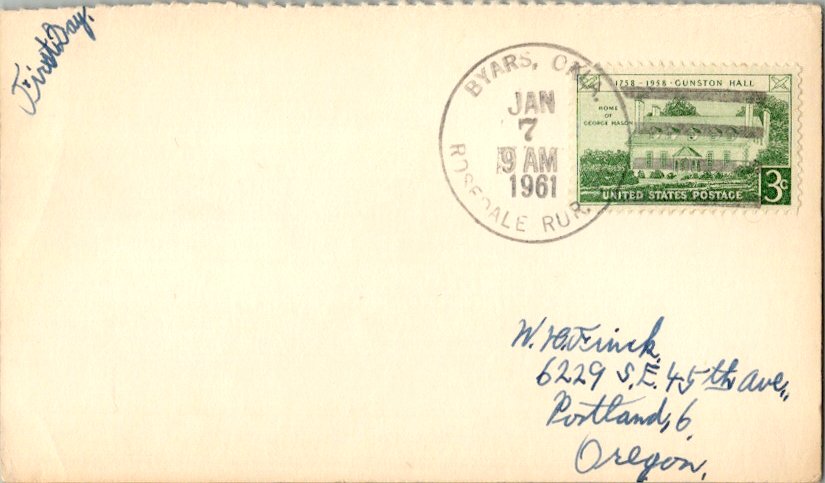 First Day.
BYARS, OKLA.
JAN
7
9 AM
1961
ROSEDALE RUR.
1758 - 1958 - GUNSTON HALL
HOME
OF
GEORGE MASON
3c
UNITED STATES POSTAGE
W. H. Finck,
6229 S.E. 45th Ave.,
Portland, 6
Oregon.